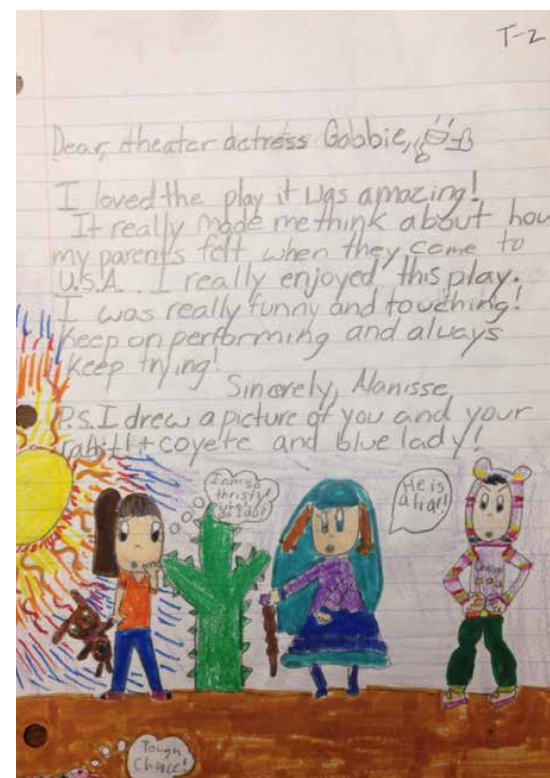 T-2
Dear, theater actress Gabbie,
I loved the play it was amazing!
It really made me think about how
my parents felt when they come to
U.S.A.. I really enjoyed this play.
I was really funny and touching!
Keep on performing and always
keep trying!
Sincerely, Alanisse
P.S. I drew a picture of you and your
rabitt + coyete and blue lady!
I am so
thristy!
He is
a liar!
Tough
Choice!